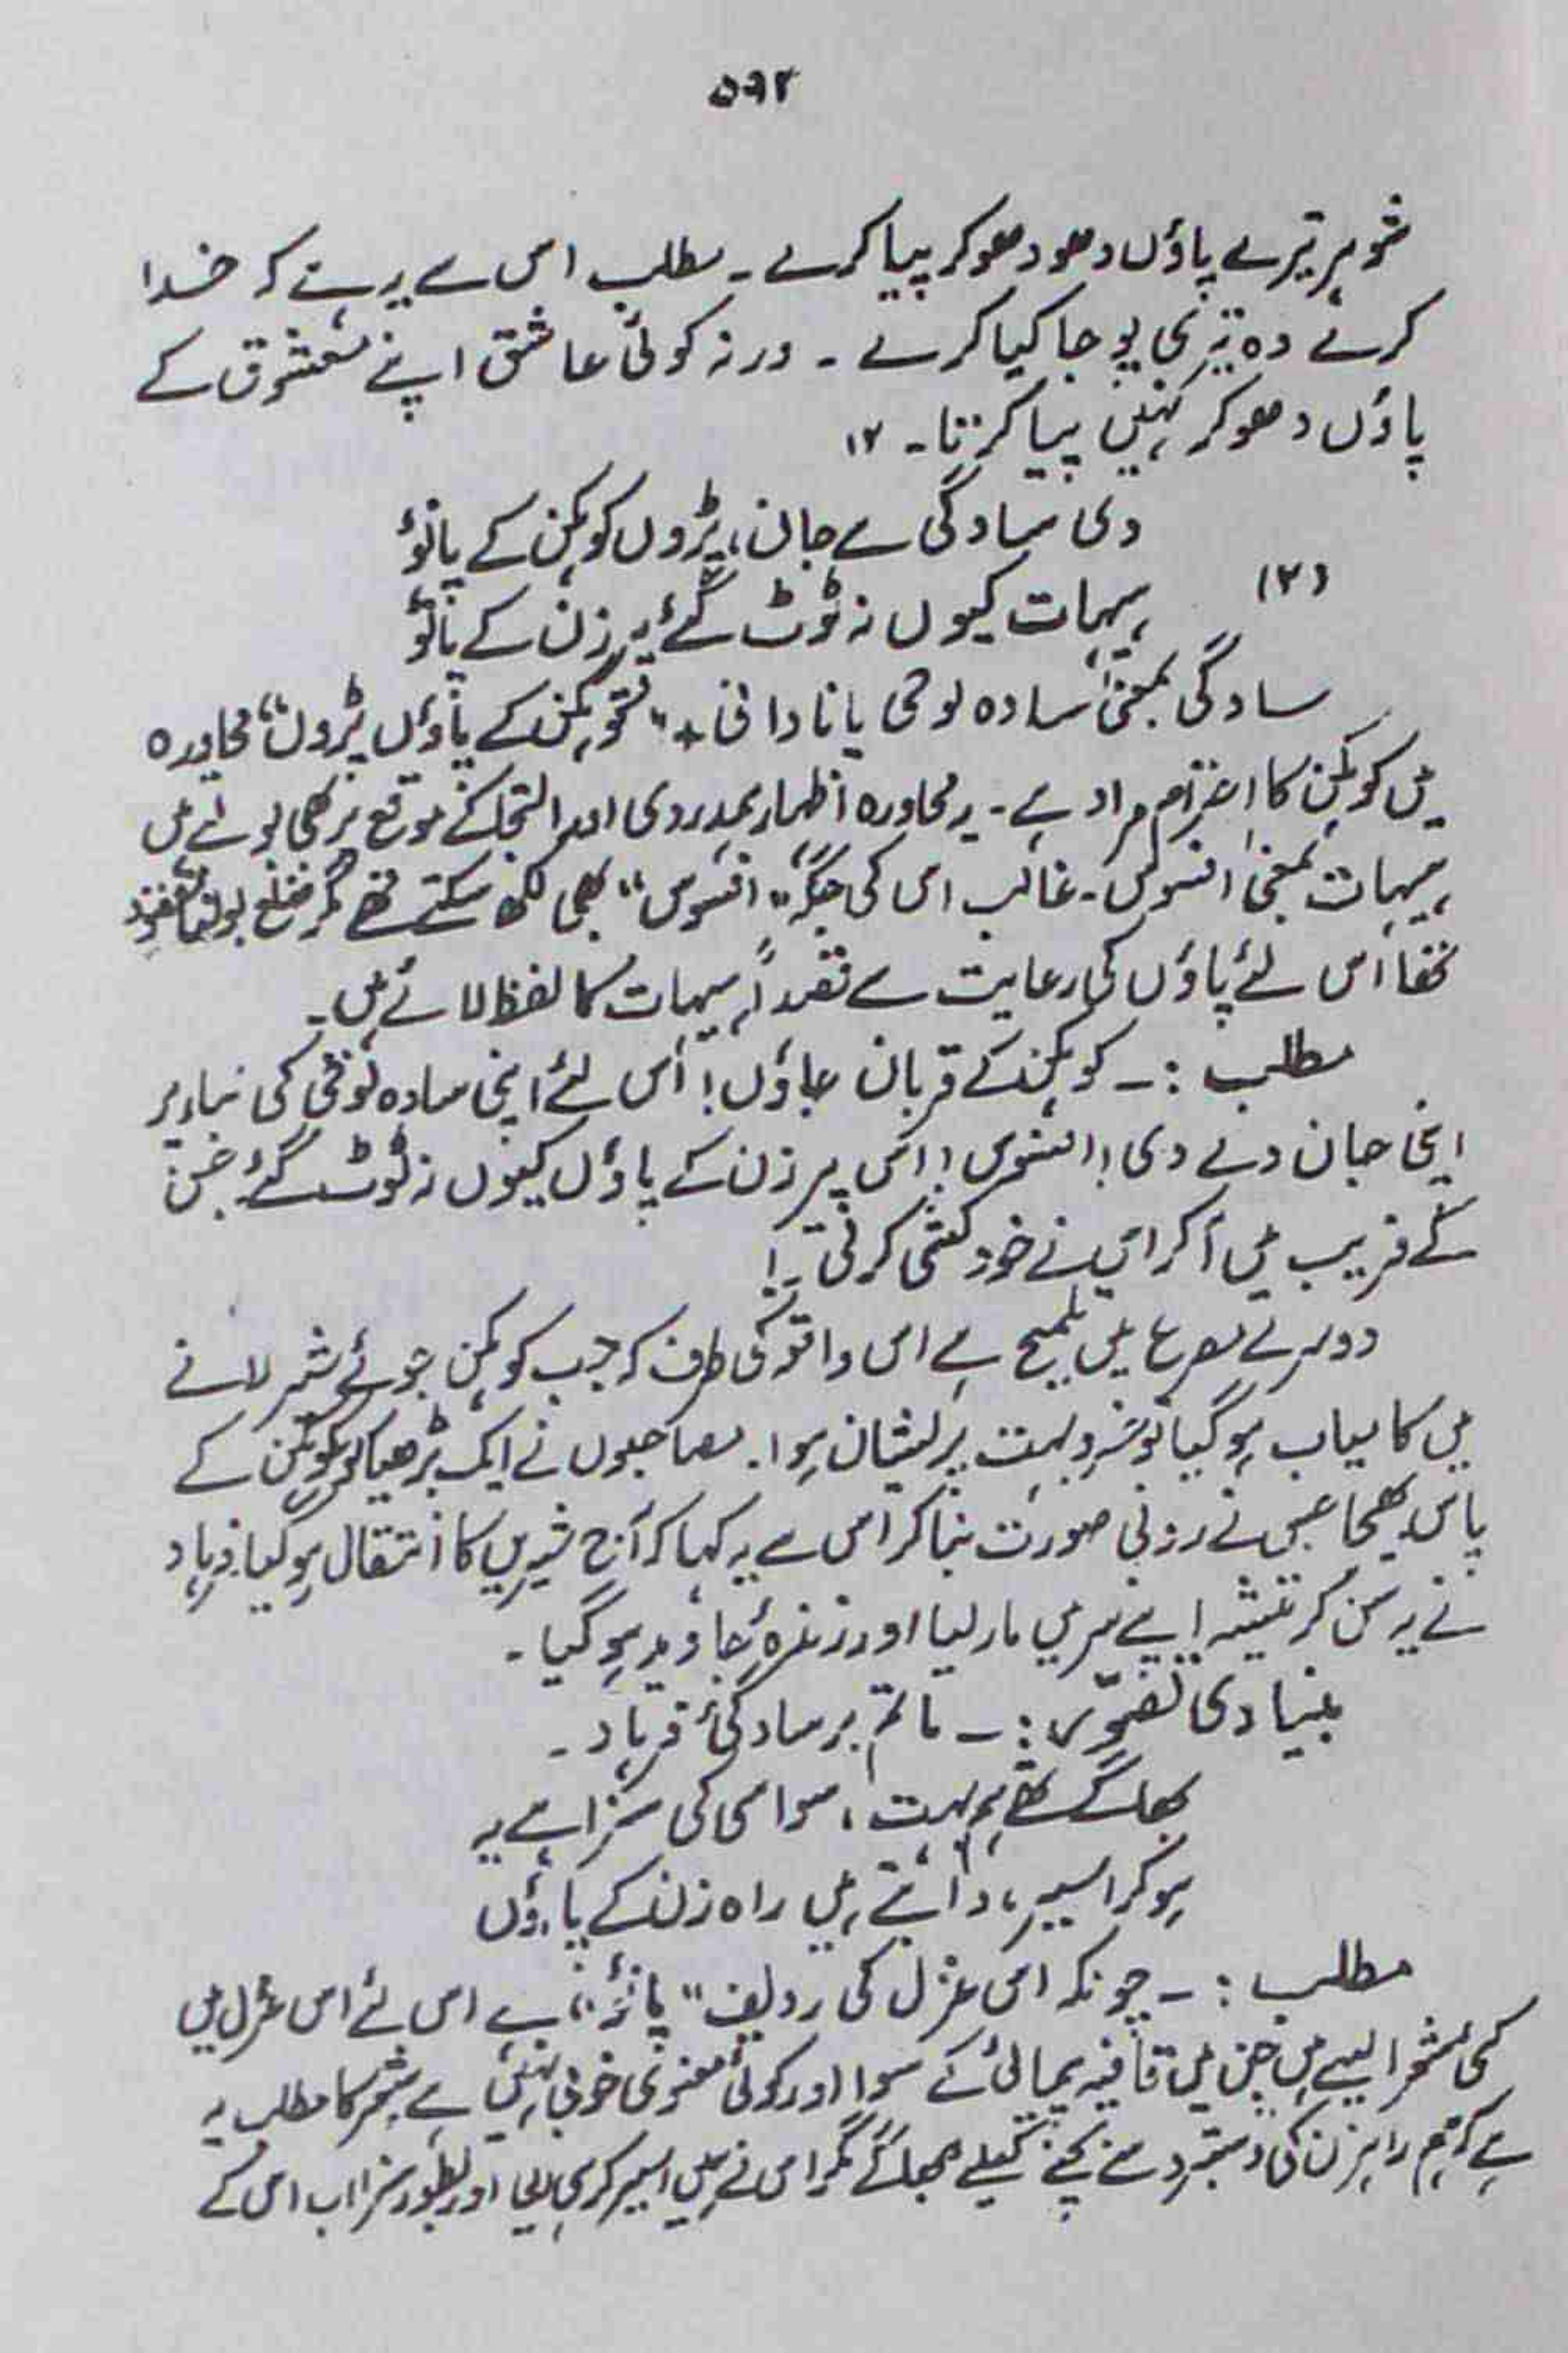 ۵۹۲
شوہر تیرے پاؤں دھو دھو کر پیا کرے ۔ مطلب اس سے یہ ہے کہ خدا
کرے وہ تیری پوجا کیا کرے ۔ ورنہ کوئی عاشق اپنے معشوق کے
پاؤں دھو کر نہیں پیا کرتا ۔ ۱۲
دی سادگی سے جان، پڑوں کوہکن کے پانؤ
(۲) ہیہات کیوں نہ ٹوٹ گئے پیر زن کے پانؤ
سادگی بمعنیٰ سادہ لوحی یا نادانی ٭ "کوہکن کے پاؤں پڑوں" محاورہ
میں کوہکن کا احترام مراد ہے ۔ یہ محاورہ اظہار ہمدردی اور التجا کے موقع پر بھی بولتے ہیں
ہیہات بمعنیٰ افسوس ۔ غالب اس کی جگہ "افسوس" بھی لکھ سکتے تھے مگر ضلع بولنا مقصود
تھا اس لئے پاؤں کی رعایت سے قصداً ہیہات کا لفظ لائے ہیں ۔
مطلب :۔ کوہکن کے قربان جاؤں! اس نے اپنی سادہ لوحی کی بناء پر
اپنی جان دے دی! افسوس! اس پیر زن کے پاؤں کیوں نہ ٹوٹ گئے جس
کے فریب میں آکر اس نے خودکشی کرلی ۔!
دوسرے مصرع میں تلمیح ہے اس واقعہ کی طرف کہ جب کوہکن جوئے شیر لانے
میں کامیاب ہوگیا تو خسرو بہت پریشان ہوا ۔ مصاحبوں نے ایک بڑھیا کو کوہکن کے
پاس بھیجا جس نے رونی صورت بنا کر اس سے یہ کہا کہ آج شیریں کا انتقال ہوگیا فرہاد
نے یہ سن کر تیشہ اپنے سر میں مار لیا اور زندۂ جاوید ہوگیا ۔
بنیادی تصوّر :۔ ماتم بر سادگیٔ فرہاد ۔
بھاگے تھے ہم بہت، سو اسی کی سزا ہے یہ
ہوکر اسیر، دابتے ہیں راہ زن کے پاؤں
مطلب :۔ چونکہ اس غزل کی ردیف "پانؤ" ہے اس لئے اس غزل میں
کئی شعر ایسے ہیں جن میں قافیہ پیمائی کے سوا اور کوئی معنوی خوبی نہیں ہے شعر کا مطلب یہ
ہے کہ ہم راہزن کی دستبرد سے بچنے کیلئے بھاگے مگر اس نے ہمیں اسیر کر ہی لیا اور بطور سزا اب اس کے